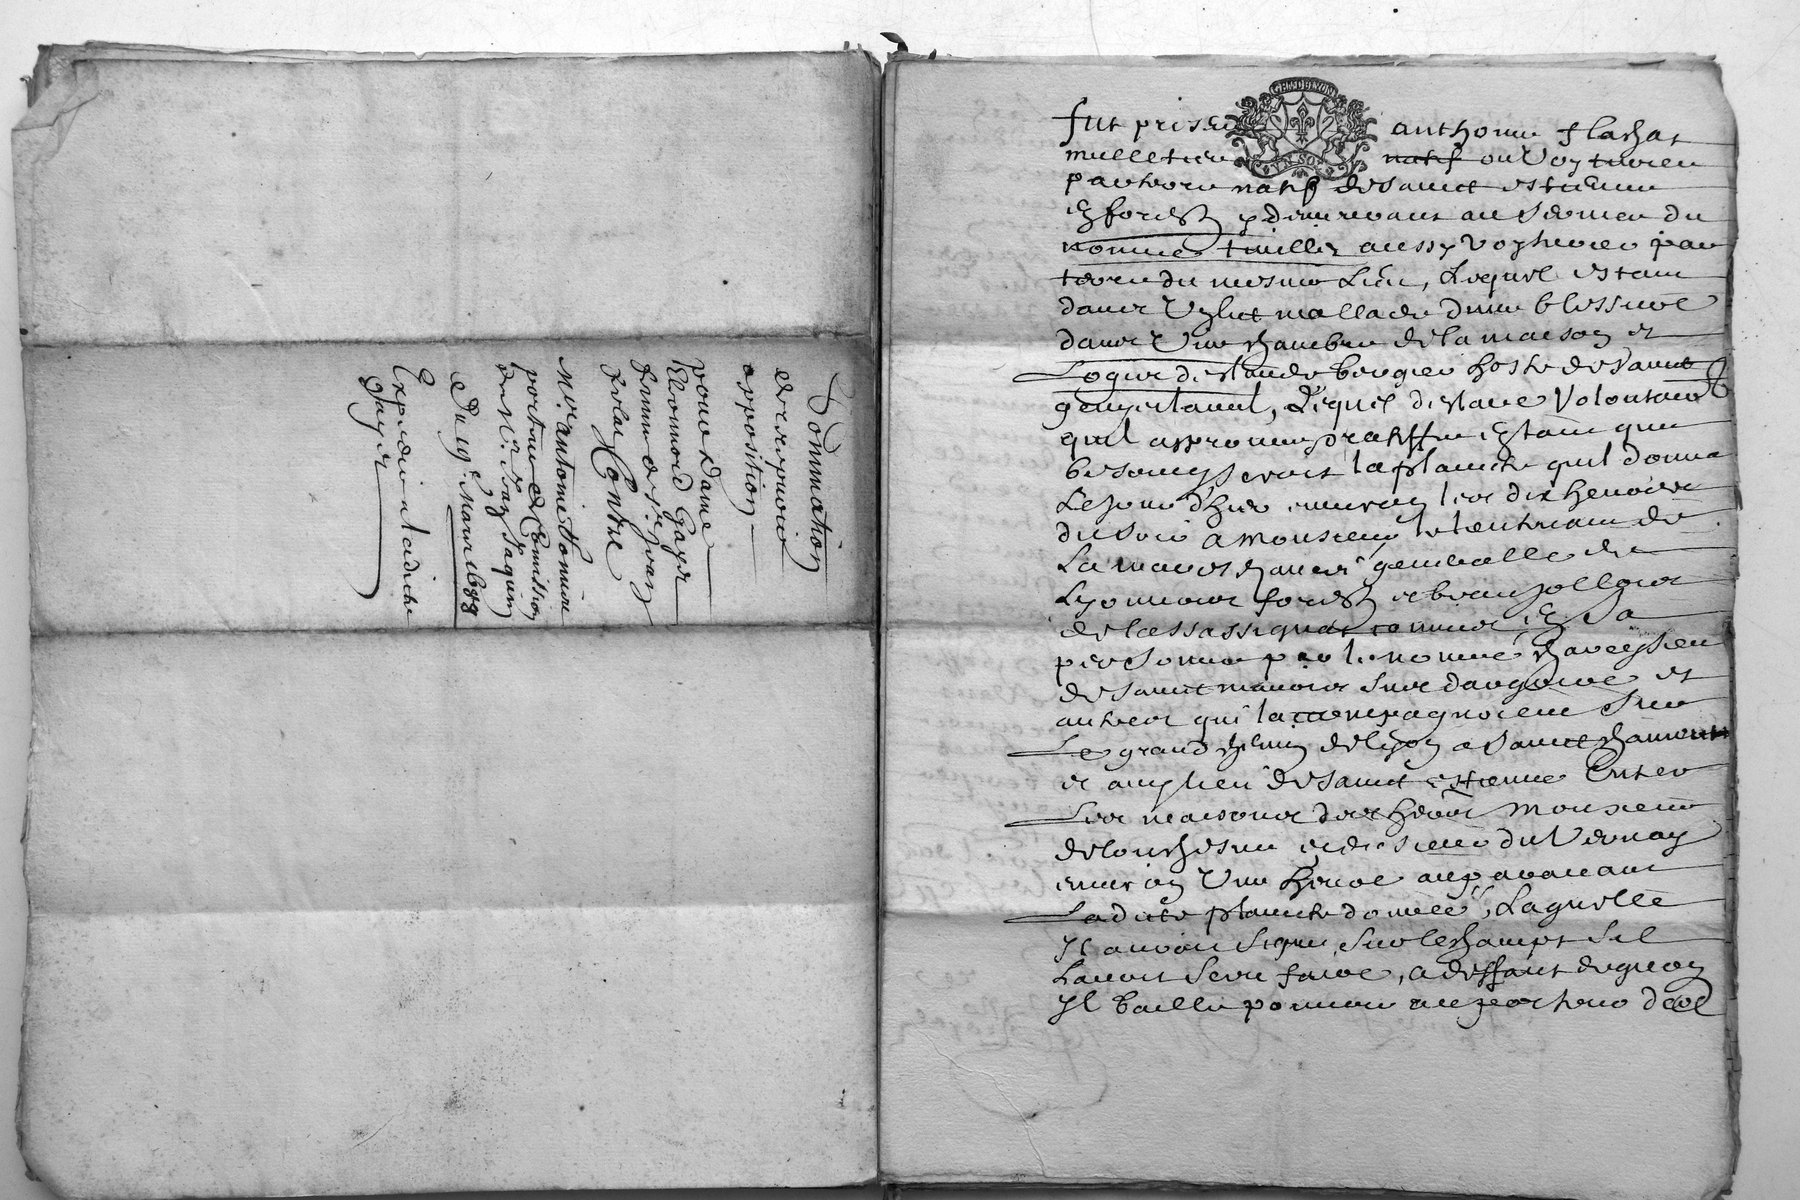 Sommation
et response
opposition
pour dame
Leonnord Gayer
femme de Sr Jean
Contre
Mre antoine
porteur de Comission
de Mr Jaquin
Du 19e Mars 1688
Expedié a ladicte
Gayer
GEN DE LYON
VN SOL
fut presen anthoine flachat
mulletier natif ou Voyturier
par terre natif de Sainct estienne
en forest y demeurant au Service du
nommé tuillier aussy voyturier par
terre du mesme Lieu, Lequel estant
dans Un lict mallade d'une blessure
dans Une chambre de la maison et
Logis de Claude bergier hoste de Sainct
genys laval, Lequel declare Volontaire
quil approuve et ratiffie en tant que
besoing seroit la plaincte quil donna
Le jour d'hier environ les dix heures
du soir a monsieur le lieutenant de
La mareschaussée generalle de
Lyonnois forest et beaujollois
de lassassignat commis en Sa
personne par le nommé
de Sainct maurice sur dargoire et
autres qui lacompagnoient Sur
Le grand chemin de Lyon a Sainct chamond
et audict lieu de Sainct estienne Entre
Les maisons des hers Monsieur
et de Sieur du Vernay
environ Une heure auparavant
Ladicte plaincte donnée, Laquelle
Il auroit signé Sur le champt Sil
Lavoit Sceu faire, a deffaut de quoy
Il baille pouvoir au porteur des